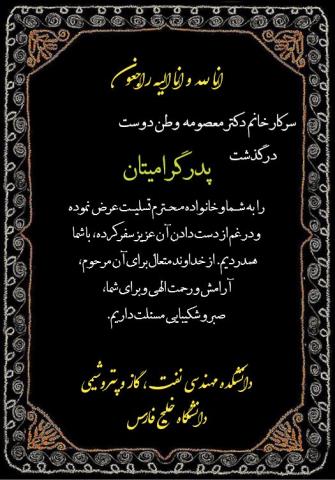 انا لله و انا الیه راجعون
سرکار خانم دکتر معصومه وطن دوست
درگذشت
پدر گرامیتان
را به شما و خانواده محترم تسلیت عرض نموده
و در غم از دست دادن آن عزیز سفر کرده، با شما
همدردیم. از خداوند متعال برای آن مرحوم،
آرامش و رحمت الهی و برای شما،
صبر و شکیبایی مسئلت داریم.
دانشکده مهندسی نفت، گاز و پتروشیمی
دانشگاه خلیج فارس